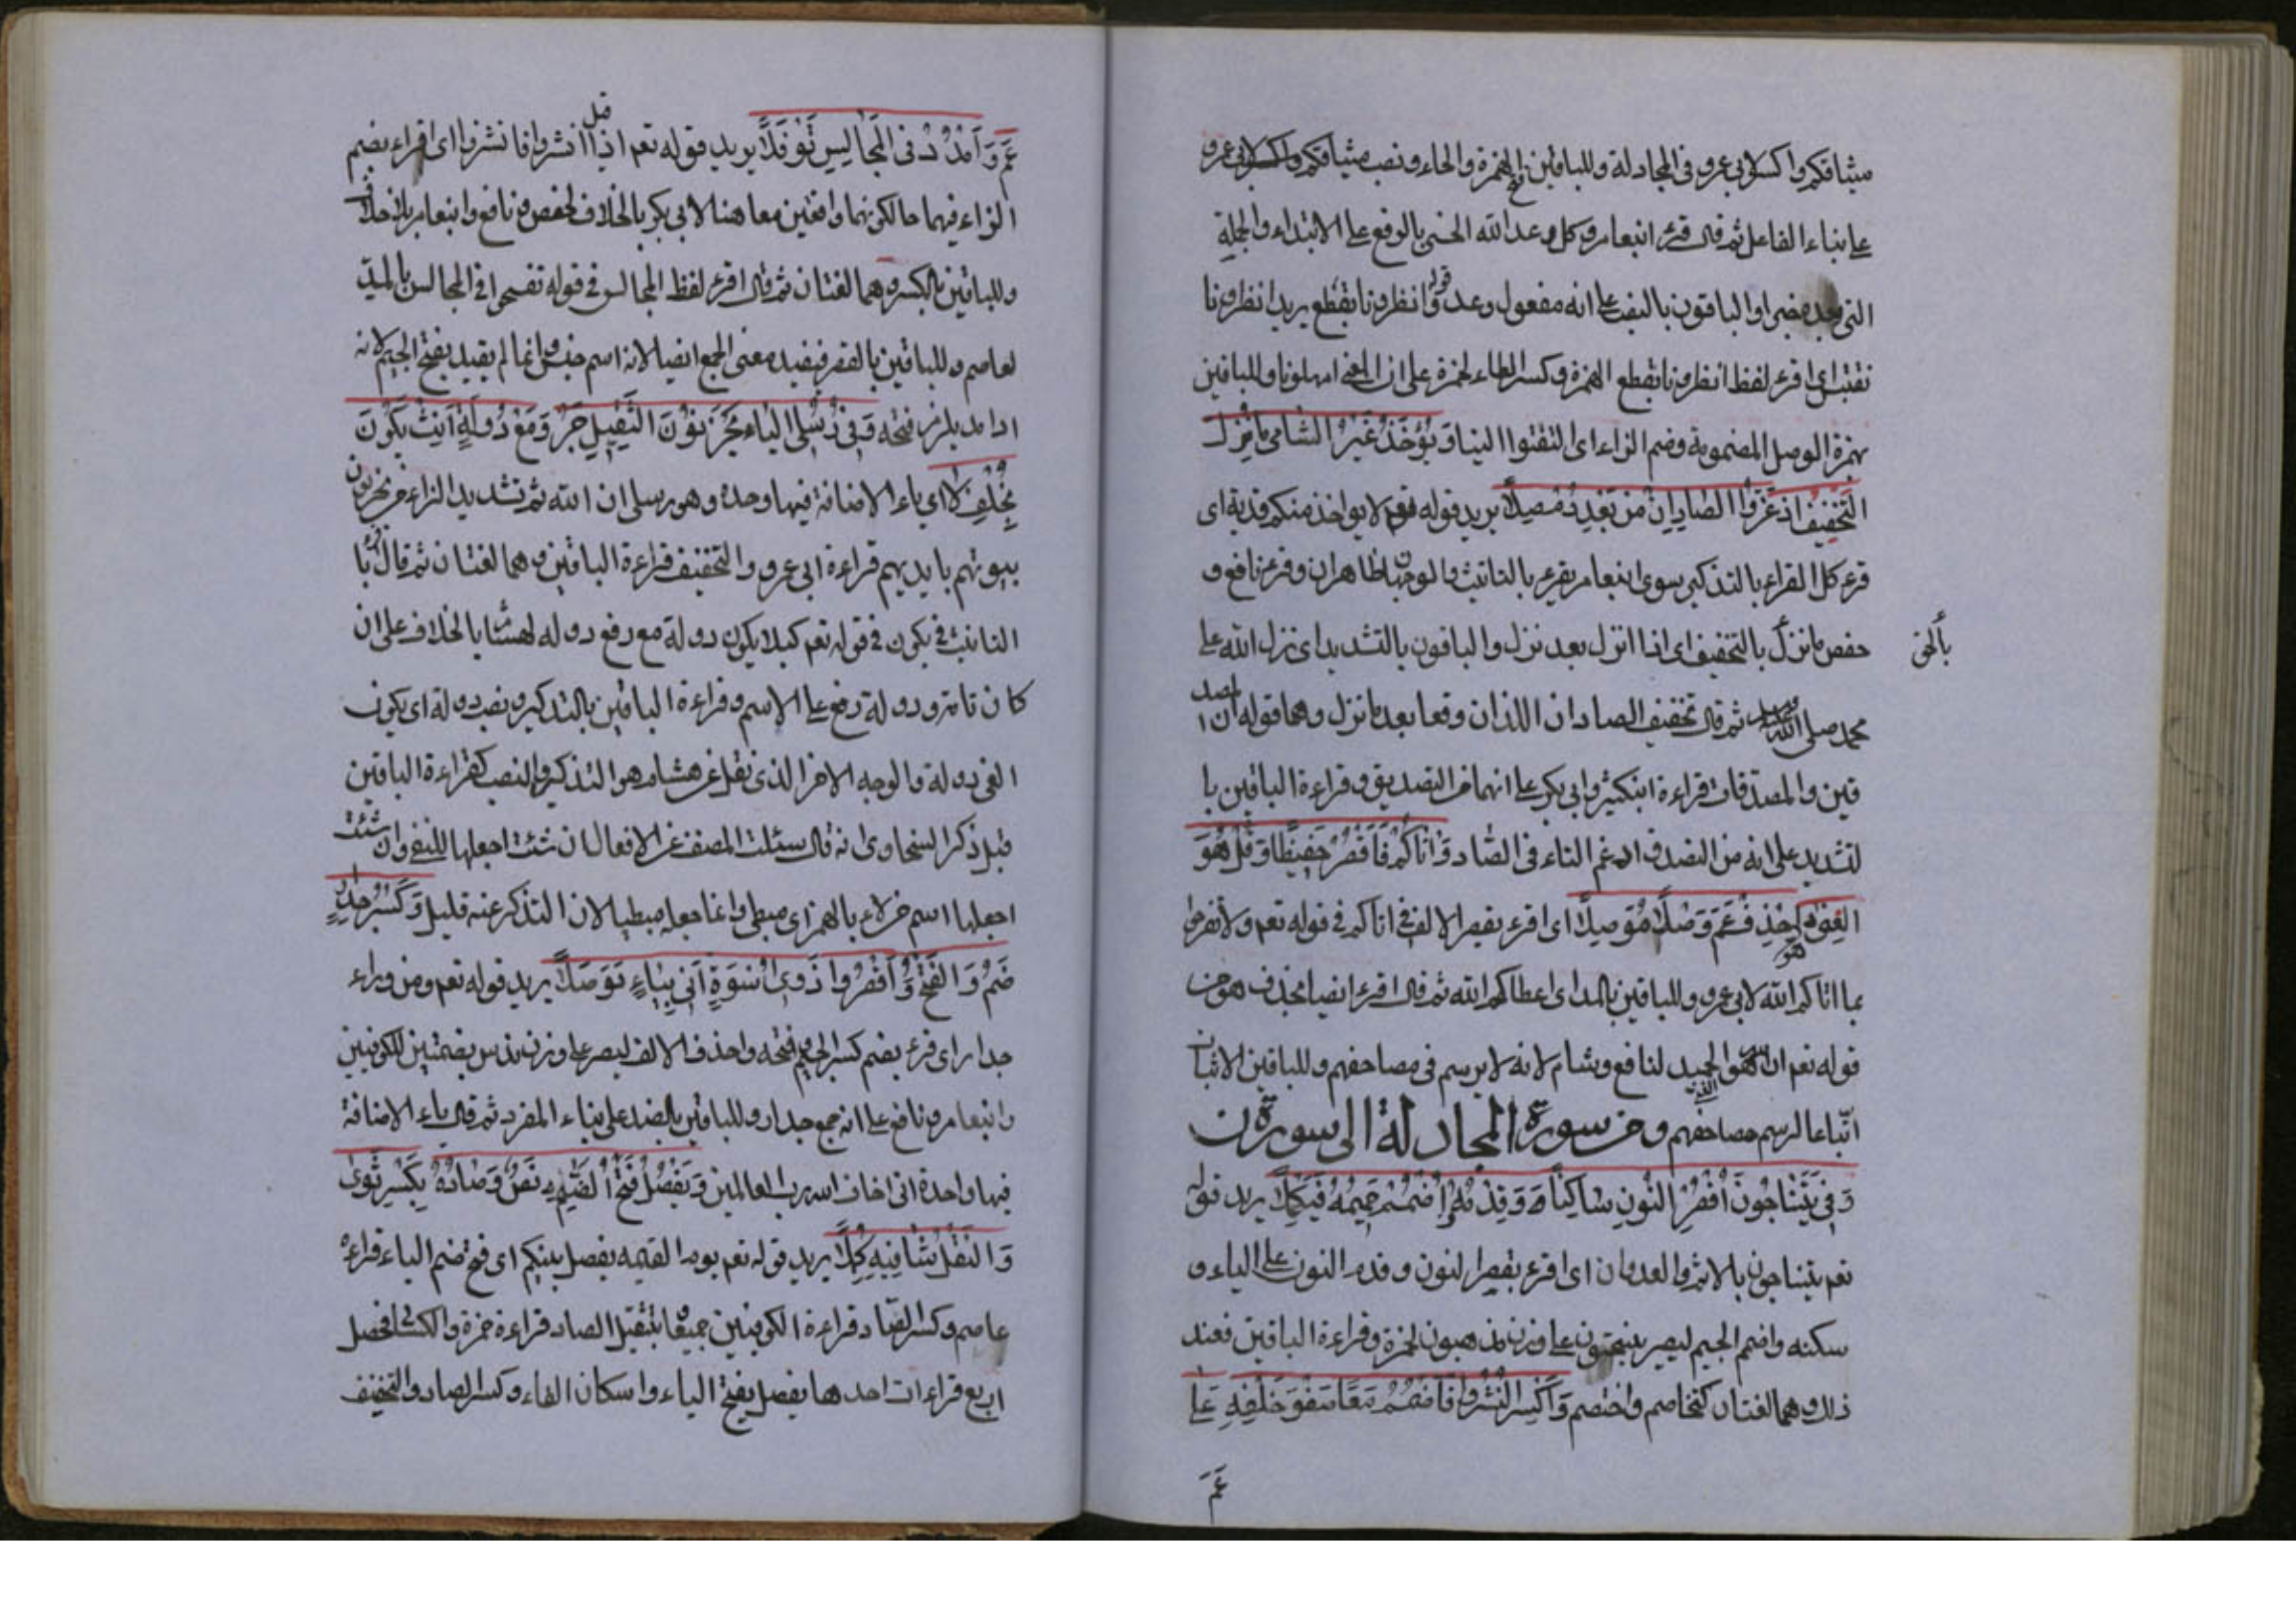 ميثاقكم واكسر لابي عمرو في المجادلة وللباقين بفتح الهمزة والخاء ونصب ميثاقكم
على بناء الفاعل ثم قال قرء ابنعامر وكل وعد الله الحسنى بالرفع على الابتداء والجملة
التي بعده خبر او الباقون بالنصب على انه مفعول وعد قوله وانظرونا بقطع يريد انظرونا
نقتبس اي اقرء لفظ انظرونا بقطع الهمزة وكسر الظاء لحمزة على ان المعنى امهلونا وللباقين
بهمزة الوصل المضمومة وضم الزاء اى التفتوا الينا وَيُؤخَذُ غَيْرُ الشَّامي مَا نَزَلَ
التَّخْفِيفُ اِذ عَزَّوَا الصَّادَانِ مِنْ بَعْدِ دُمْ صِلاً يريد قوله تعم لا يؤاخذ منكم فدية اى
قرء كل القراء بالتذكير سوى ابنعامر يقرء بالتانيث والوجهان ظاهران وقرء نافع و
حفص ما نزل بالتخفيف اى اذا انزل بعد نزل والباقون بالتشديد اى نزل الله على
بالحق
محمد صلى الله عليه وسلم ثم قال تخفيف الصادان اللذان وقعا بعد ما نزل وهما قوله ان المصد
قين والمصدقات قراءة ابنكثير وابى بكر على انهما من التصديق وقراءة الباقين با
لتشديد على انه من التصدق ادغم التاء في الصاد وَآتَاكُمْ فَاقْصُرْ حَفِيظًا وَقُلْ هُوَ
الغَنِيُّ هو احْذِفْ عَمَّ وَصْلاً مُوَصَّلاً اى اقرء بقصر الالف في اتاكم في قوله تعم ولا تفرحوا
بما اتاكم الله لابى عمرو وللباقين بالمد اى اعطاكم الله ثم قال اقرء ايضا بحذف هو من
قوله تعم ان الله هو الغنى الحميد لنافع وشام لانه لا يرسم في مصاحفهم وللباقين الاثبات
اتّباعا لرسم مصاحفهم ومن سورة المجادلة الى سورة ن
وَفِي يَتَنَاجَوْنَ اقْصُرِ النُّونَ سَاكِنًا وَقَدِّمْهُ وَاضْمُمْ جِيمَهُ فَتُكَمِّلاَ يريد قوله
تعم يتناجون بالاثم والعدوان اى اقرء بقصر النون وقدم النون على الياء و
سكنه واضمم الجيم ليصير ينتجون على وزن يذهبون لحمزة وقراءة الباقين فعند
ذلك وهما لغتان كتخاصم واختصم وَاكْسِرِ انْشُزُوا فَاضْمُمْ مَعًا صَفْوَ خُلْفِهِ عُلاً
عَمَّ
عَمَّ وَامْدُدْ فِي المَجَالِسِ نَوْفَلاَ يريد قوله تعم اذا قيل انشزوا فانشزوا اى اقراء بضم
الزاء فيهما حالكونهما واقعين معا هنا لابى بكر بالخلاف لحفص ونافع وابنعامر بلا خلاف
وللباقين بالكسر وهما لغتان ثم قال اقرء لفظ المجالس في قوله تفسحوا في المجالس بالمدّ
لعاصم وللباقين بالقصر فيفيد معنى الجمع ايضا لانه اسم جنس وانما لم يقيد بفتح الجيم لانه
اذا مد يلزم فتحه وَفِي رُسُلِي اليَاء يُخْرِبُونَ الثَّقِيلَ حُزْ وَمَعْ دُولَةٌ اَنِّثْ يَكُونَ
بِخُلْفِ لاَ اى ياء الاضافة فيها وحده وهو رسلى ان الله ثم تشديد الراء من يخربون
بيوتهم بايديهم قراءة ابى عمرو والتخفيف قراءة الباقين وهما لغتان ثم قال اقرء با
التانيث في يكون في قوله تعم كيلا يكون دولة مع رفع دولة لهشام بالخلاف على ان
كان تامة ودولة رفع على الاسم وقراءة الباقين بالتذكير ونصب دولة اى يكون
الفئ دولة والوجه الاخر الذى نقل عن هشام هو التذكير والنصب كقراءة الباقين
قيل ذكر السخاوى انه قال سئلت المصنف عن لا فقال ان شئت اجعلها للنفى وان شئت
اجعلها اسم من لاء بالهمز اى مبطى وانما جعله مبطيا لان التذكر عنه قليل وَكَسْرُ جِدَارٍ
ضُمَّ وَالفَتْحَ وَاقْصُرُوا ذَوِي اُسْوَةٍ اِنِّي بِيَاءٍ تَوَصَّلاَ يريد قوله تعم ومن وراء
جدار اى قرء بضم كسر الجيم وفتحه واحذف الالف ليصير على وزن نذر بضمتين للكوفيين
وابنعامر ونافع على انه جمع جدار وللباقين بالضد على بناء المفرد ثم قال ياء الاضافة
فيها واحدة انى اخاف الله رب العالمين وَيُفْصَلُ فَتْحُ الضَّمِّ نَصٌّ وَصَادُهُ بِكَسْرٍ ثَوَى
وَالثِّقْلُ شَافِيهِ كُمِّلاَ يريد قوله تعم يوم القيمة يفصل بينكم اى فتح ضم الياء قراءة
عاصم وكسر الصّاد قراءة الكوفيين جميعا بتثقيل الصاد قراءة حمزة والكسائى فحصل
اربع قراءات احدها يفصل بفتح الياء واسكان الفاء وكسر الصاد والتخفيف